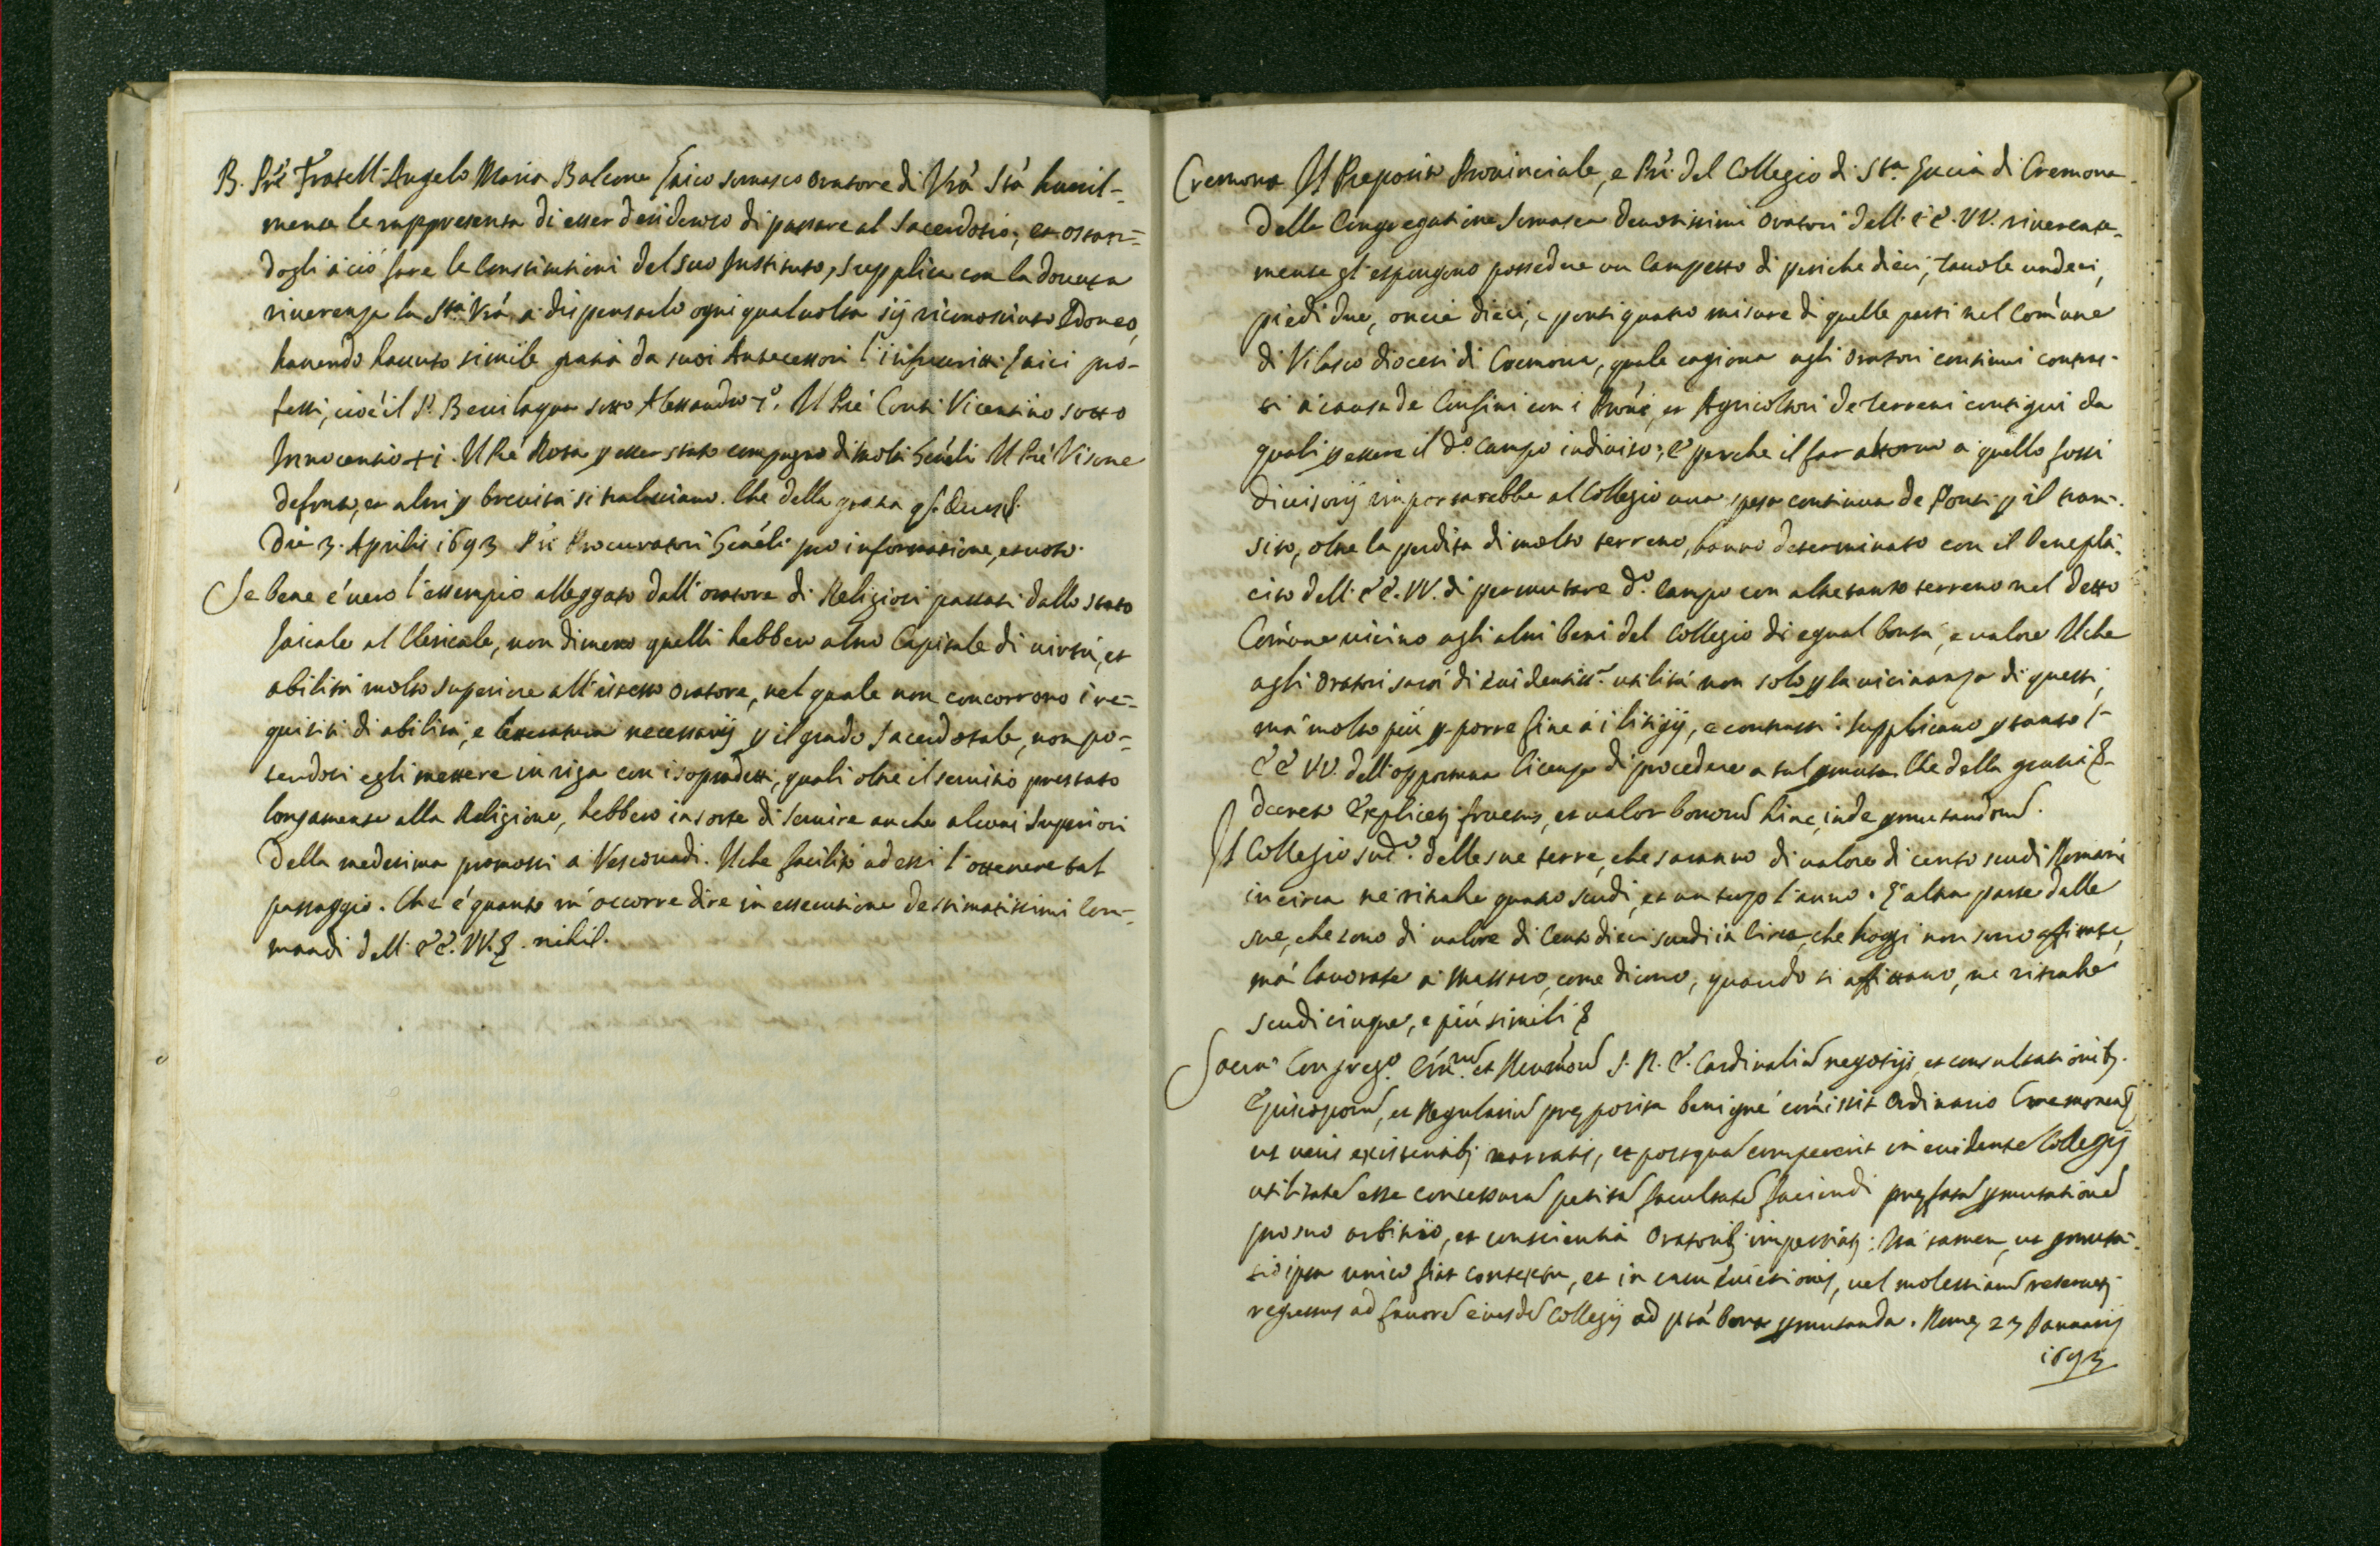 B. Prē Fratell' Angelo Maria Balcone laico somasco oratore di Vrā Stà humil-
mente le rappresenta di esser desideroso di passare al Sacerdotio, et ostan-
dogli à ciò fare le Constitutioni del suo Instituto, supplica con la dovuta
riverenza la Stà Vrā à dispensarlo ogni qualuolta sij riconosciuto Idoneo,
hauendo hauuto simile gratia da suoi Antecessori l'infrascritti laici pro-
fessi, cioè il P. Beuilaqua sotto Alessandro 7º. Il Prē Conti Vicentino sotto
Innocentio xi. Il Prē Rota p esser stato compagno di molti Genēli Il Prē Visone
defonto, et altri p brevità si tralasciano. Che della gratia
Die 3. Aprilis 1693 Pri Procuratori Genēli pro informatione, et voto.
Se bene è vero l'essempio alleggato dall'oratore di Religiosi passati dallo stato
laicale al Clericale, non dimeno quelli hebbero altro Capitale di virtù, et
abilità molto superiore all'istesso oratore, nel quale non concorrono i re-
quisiti di abilità, e letteratura necessarij p il grado Sacerdotale, non po-
tendosi egli mettere in riga con i sopradetti, quali oltre il servitio prestato
longamente alla Religione, hebbero in sorte di servire anche alcuni Superiori
della medesima promossi à Vescouadi. Il che facilitò ad essi l'ottenere tal
passaggio. Che è quanto m'occorre dire in essecutione de stimatissimi Com-
mandi dell' EE. VV. &. nihil.
Cremona Il Preposito Prouinciale, e Pri del Collegio di Sta Lucia di Cremona
della Congregatione Somasca deuotissimi oratori dell' EE. VV. riuerente-
mente gl'espongono possedere un Campetto di pertiche dieci, tauole undeci,
piedi due, oncie dieci, e ponti quatro misure di quelle parti nel Comūne
di Vilasco diocesi di Cremona, quale cagiona agli oratori continui contras-
ti à causa de Confini con i Prōni, et Agricoltori de terreni contigui da
quali p essere il dº campo indiuiso; e perche il far attorno à quello fossi
diuisorij importarebbe al Collegio una spesa continua de Ponti p il tran-
sito, oltre la perdita di molto terreno, hanno determinato con il beneplà-
cito dell' EE. VV. di permutare dº campo con altretanto terreno nel detto
Comūne uicino agli altri beni del Collegio di egual bontà, e valore Il che
agli oratori sarà di euidentiss.a utilità non solo p la uicinanza di questi,
mà molto più p porre fine à i litigij, e contrasti. Supplicano p tanto l'
EE VV. dell'opportuna licenza di procedere a tal pmuta. Che della gratia &
decreto Explicet fructus, et valor bonorū hinc inde pmutandorū.
Il Collegio sudº. delle sue terre, che saranno di valore di cento scudi Romani
incirca ne ritrahe quatro scudi, et un terzo l'anno. L'altra parte dalle
sue, che sono di ualore di Cento dieci scudi in circa, che hoggi non sono affittate,
mà lauorate à Massaro, come dicono, quando si affittano, ne ritrahe
scudi cinque, e più simili &
Sacra Congregº. Em̄.rū et Reum̄orū S. R. E. Cardinaliū negotijs, et consultationib.
Episcoporū, et Regulariū preposita benignè com̄isit Ordinario Cremonen
ut ueris existentib narratis, et postquā comperuerit in euidentē Collegij
utilitatē esse concessurā petitā facultatē faciendi prefatā pmutationē
pro suo arbitrio, et conscientia Oratorib impertiat; Ita tamen, ut pmuta-
tio ipsa unico fiat contextu, et in casu Euictionis, uel molestiarū reseruet
regressus ad fauorē eiusdē Collegij ad prā bona pmutanda. Rome 23 Januarij
1693